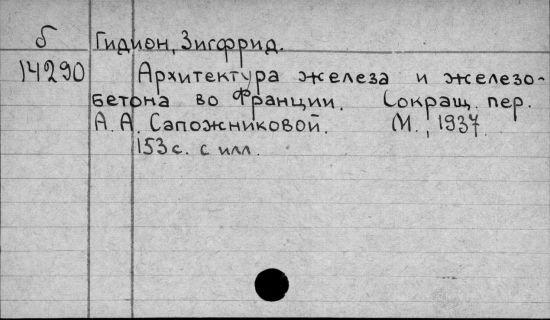 б Гидион, Зигфрид.
14290 Архитектура железа и железо-
бетона во Франции. Сокращ. пер.
А.А. Сапожниковой. М., 1937.
153 с. с илл.